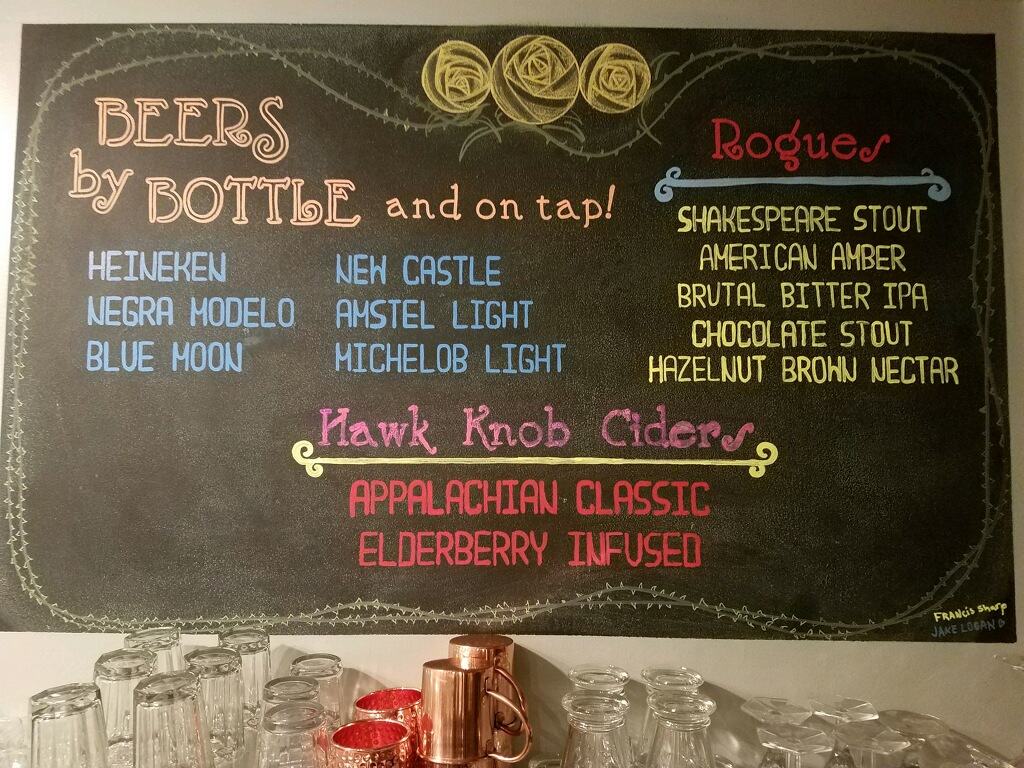 BEERS
by BOTTLE and on tap!
HEINEKEN
NEGRA MODELO
BLUE MOON
NEW CASTLE
AMSTEL LIGHT
MICHELOB LIGHT
Rogues
SHAKESPEARE STOUT
AMERICAN AMBER
BRUTAL BITTER IPA
CHOCOLATE STOUT
HAZELNUT BROWN NECTAR
Hawk Knob Ciders
APPALACHIAN CLASSIC
ELDERBERRY INFUSED
FRANCIS Sharp
JAKE LOGAN